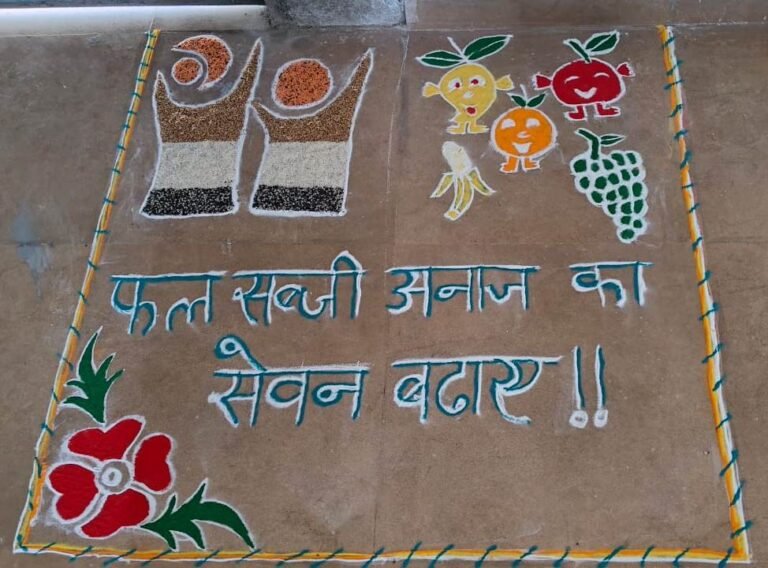 फल सब्जी अनाज का
सेवन बढाए !!